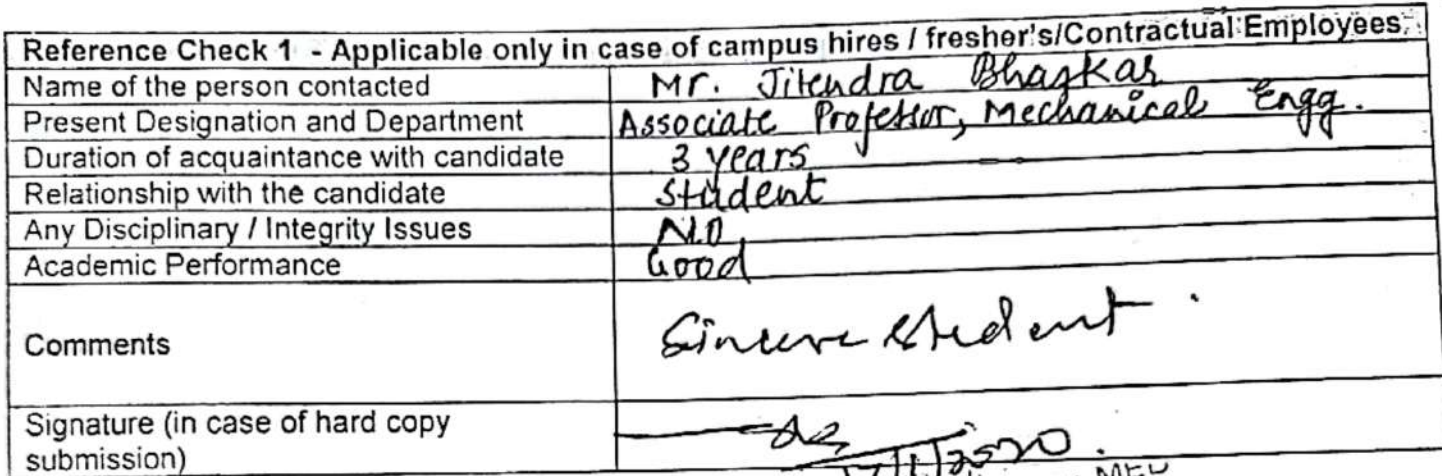 Reference Check 1 - Applicable only in case of campus hires / fresher's/Contractual Employees.
Name of the person contacted Mr. Jitendra Bhaskar
Present Designation and Department Associate Professor, Mechanical Engg.
Duration of acquaintance with candidate 3 years
Relationship with the candidate Student
Any Disciplinary / Integrity Issues NO
Academic Performance Good
Comments Sincere Student.
Signature (in case of hard copy
submission)